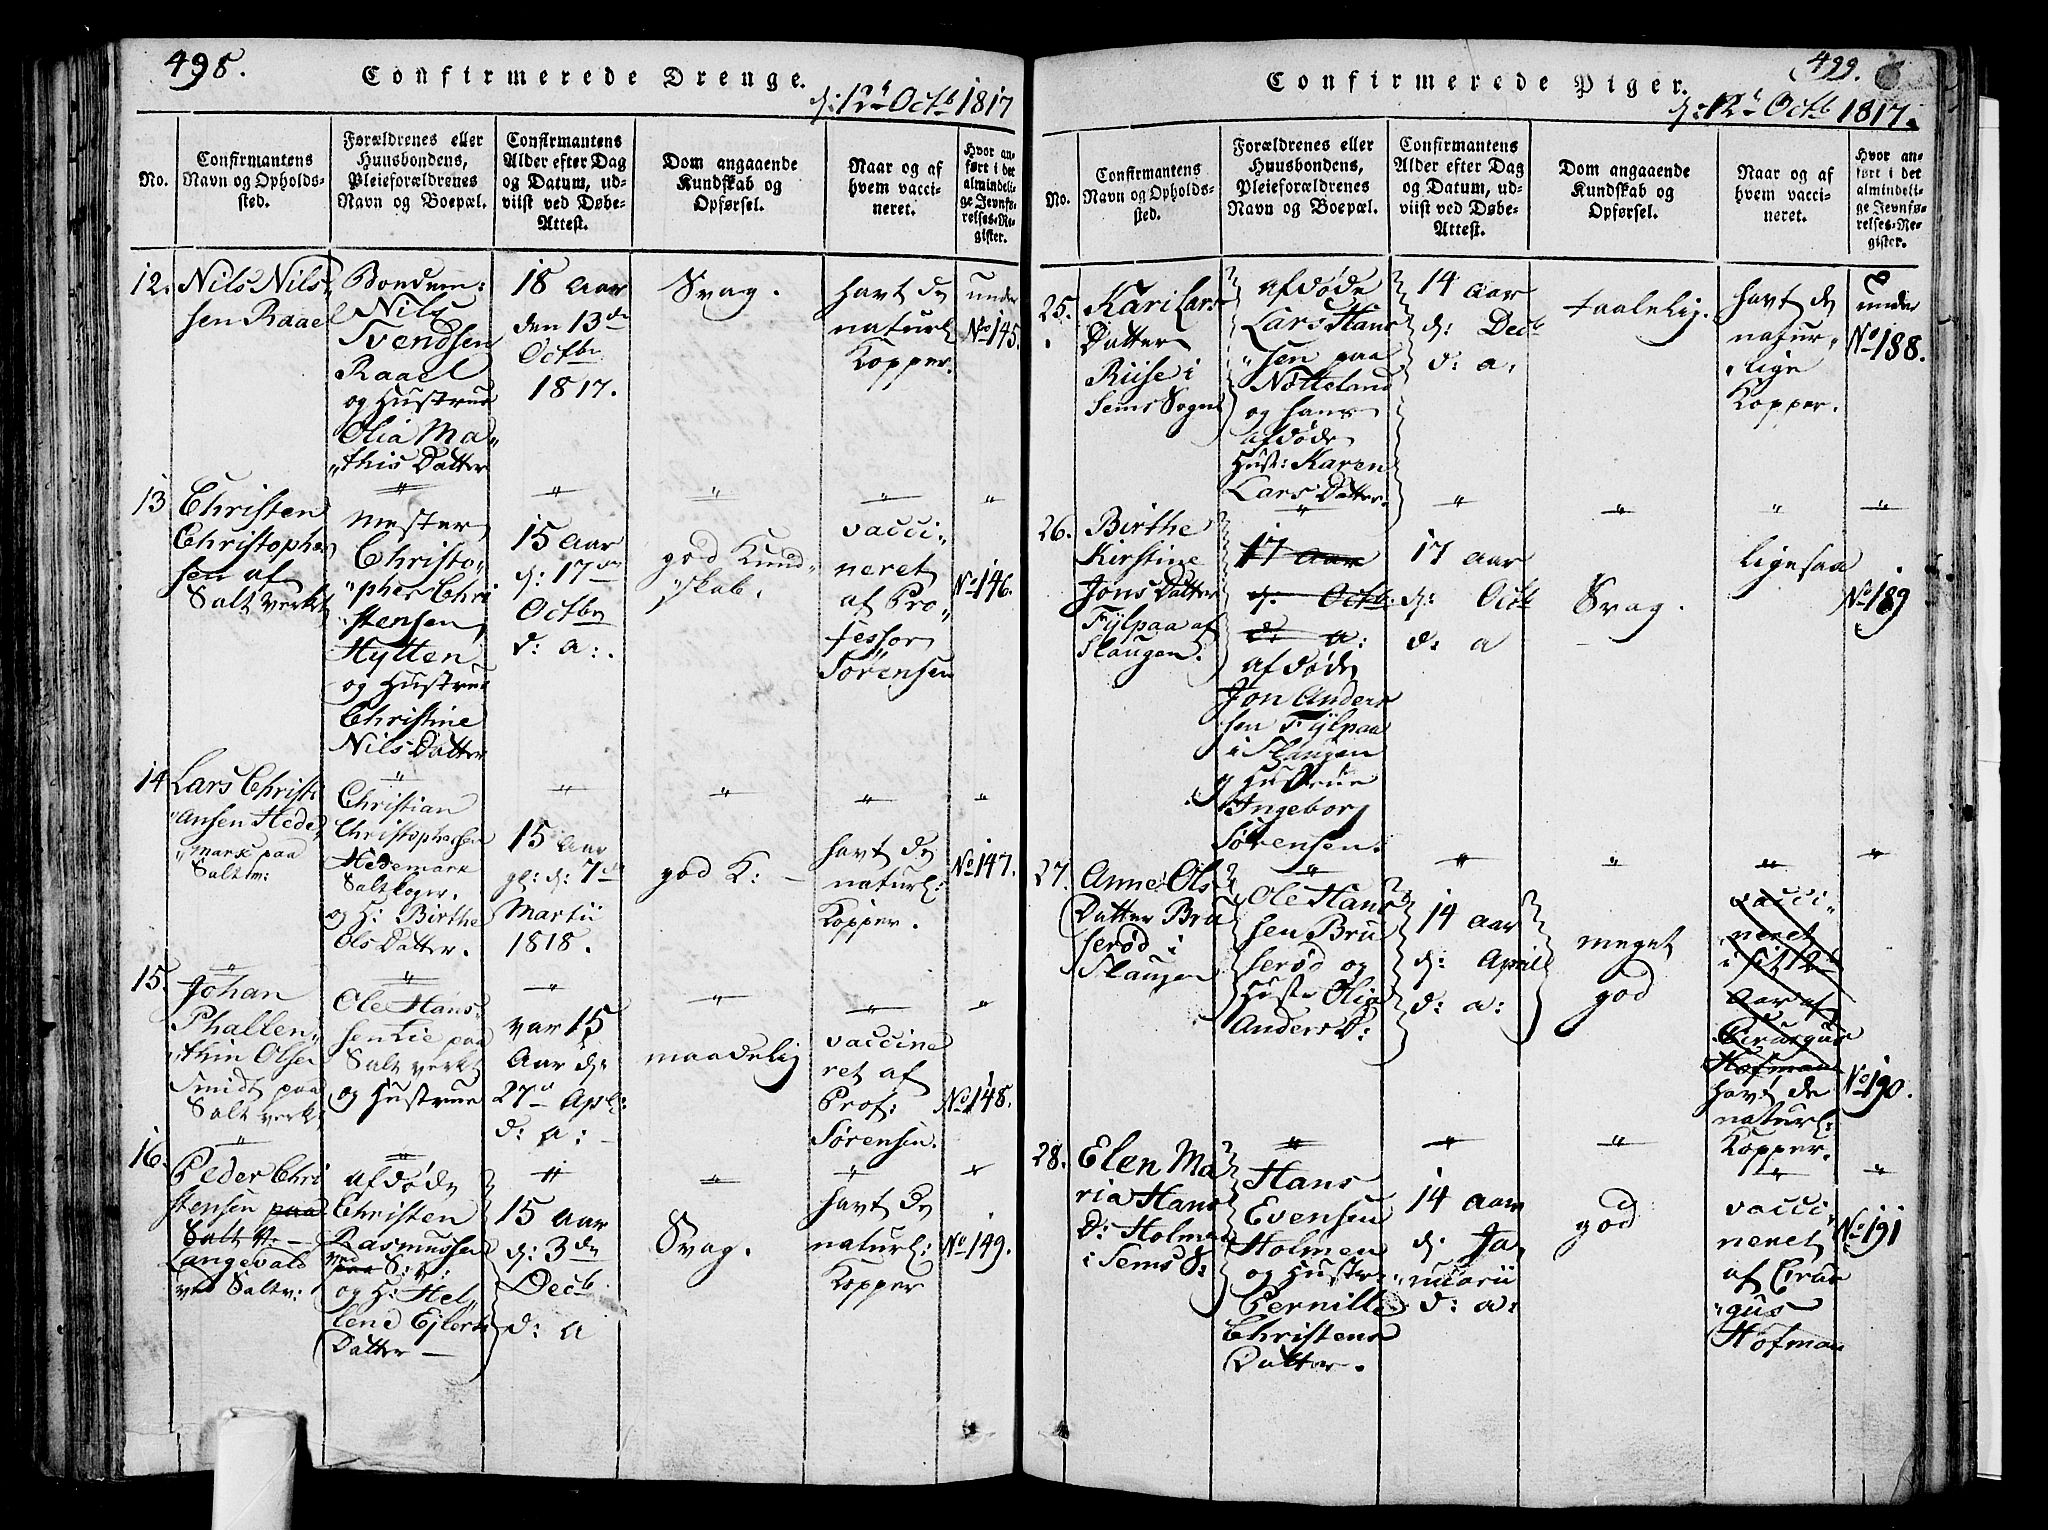 498.
Confirmerede Drenge.
d: 12t Octb 1817
No.
Confirmantens
Navn og Opholds-
sted.
Forældrenes eller
Huusbondens,
Pleieforældrenes
Navn og Boepæl.
Confirmantens
Alder efter Dag
og Datum, ud-
viist ved Døbe-
Attest.
Dom angaaende
Kundskab og
Opførsel.
Naar og af
hvem vacci-
neret.
Hvor an-
ført i det
almindeli-
ge Jevnfø-
relses-Re-
gister.
12.
Nils Nils„
sen Raael
Bonden:
Nils
Svendsen
Raael
og Hustrue
Olia Ma„
„this Datter
18 Aar
den 13de
Octbr
1817.
Svag.
havt de
naturl
Kopper.
under
No 145.
13
Christen
Christopher
sen af
Salt verket
mester
Christo„
„pher Chri
stensen
Hytten
og Hustrue
Christine
Nils Datter
15 Aar
d: 17de
Octbr
d: a:.
god Kund„
„skab.
vacci„
neret
af Pro„
fessor
Sørensen
No 146.
14
Lars Christi
„ansen Hede„
„mark paa
Saltv:
Christian
Christophersen
Hedemark
Saltkoger.
og H: Birthe
Ols Datter.
15 Aar
gl: d: 7de
Martii
1818.
god K: –
havt de
naturl:
Kopper.
No 147.
15.
Johan
Phallen„
„thin Olsen
Smidt paa
Salt verket
Ole Hans„
sen Lie paa
Salt verket
og Hustrue
var 15
Aar d:
27de Apl:
d: a: –
maadelig
vaccine
ret af
Prof:
Sørensen.
No 148.
16.
Peder Chri
stensen paa
Salt v. –
Langevald
ved Saltv:
afdøde
Christen
Rasmussen
ved
paa S: v:
og H: Hel„
lene Ejlerts
Datter –
15 Aar
d: 3de
Decb
d: a
Svag.
havt de
naturl:
Kopper
No 149.
499.
Confirmerede Piger.
d: 12t Octb 1817.
No.
Confirmantens
Navn og Opholds-
sted.
Forældrenes eller
Huusbondens,
Pleieforældrenes
Navn og Boepæl.
Confirmantens
Alder efter Dag
og Datum, ud-
viist ved Døbe-
Attest.
Dom angaaende
Kundskab og
Opførsel.
Naar og af
hvem vacci-
neret.
Hvor an-
ført i det
almindeli-
ge Jevnfø-
relses-Re-
gister.
25.
Kari Lars
Datter
Riise i
Sems Sogn
afdøde
Lars Hans
„sen paa
Nøtteland
og hans
afdøde
Hust: Karen
Lars Datter.
14 Aar
d: Decb
d: a.
taalelig.
havt de
natur„
„lige
Kopper.
under
No 188.
26.
Birthe
Kirstine
Jons Datter
Fylpaa af
Slaugen.
17 Aar
d: Octb.
d: a:
afdøde
Jon Anders
sen Fylpaa
i Slaugen
og Hustrue
Ingeborg
Sørensen.
17 Aar
d: Octb
d: a
Svag.
ligesaa
No 189
27.
Anne Ols
Datter Bru
serød i
Slaugen
Ole Hans
sen Bru
serød og
Hustr Olia
Anders D:
14 Aar
d: April
d: a:
meget
god
vacci„
neret
i sit 12te
Aar af
Cirurgus
Hofman
havt de
naturl:
Kopper.
No 190.
28.
Elen Ma
ria Hans
D: Holmen
i Sems S:
Hans
Evensen
Holmen
og Hustru
Pernille
Christens
Datter.
14 Aar
d. Ja„
„nuarii
d: a:
god
vacci„
neret
af Cirur
„gus
Hofman
No 191